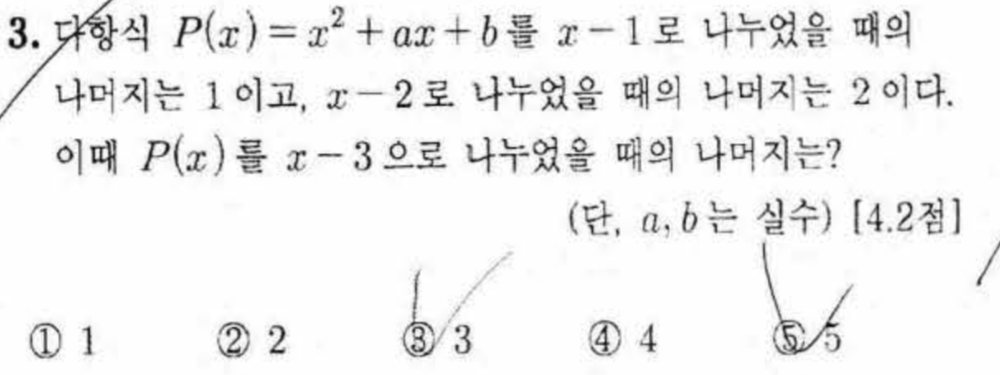 3. 다항식 P(x)=x²+ax+b를 x-1로 나누었을 때의
나머지는 1이고, x-2로 나누었을 때의 나머지는 2이다.
이때 P(x)를 x-3으로 나누었을 때의 나머지는?
(단, a, b는 실수) [4.2점]
① 1 ② 2 ③ 3 ④ 4 ⑤ 5